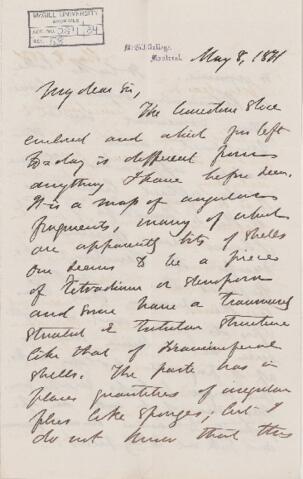 McGILL UNIVERSITY
ARCHIVES
ACC. NO.
REF.
McGill College,
Montreal.
May 8, 1871
My dear Sir,
The limestone slice
enclosed and which you left
to day is different from
anything I have before seen.
It is a mass of angular
fragments, many of which
are apparently bits of shells
One seems to be a piece
of Tetradium or Stenopora
and some have a
structure
like that of
shells. The paste has in
places quantities of angular
like sponges; but I
do not know that this